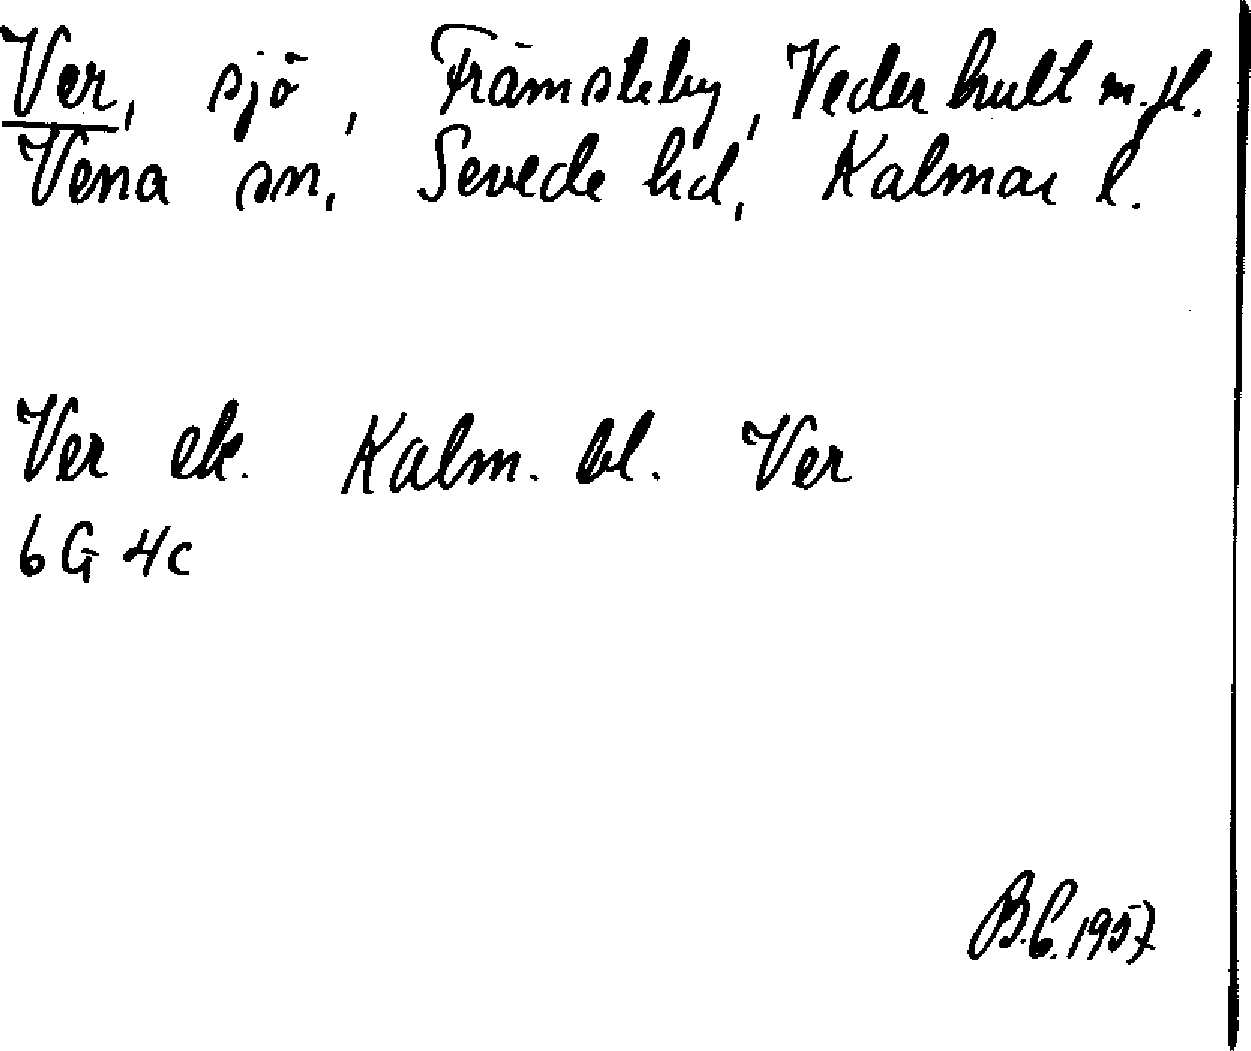 Ver, sjö, Främsteby, Vederhult m.fl.
Vena sn, Sevede hd, Kalmar l.
Ver ek. Kalm. bl. Ver
6G 4c
B.C. 1957